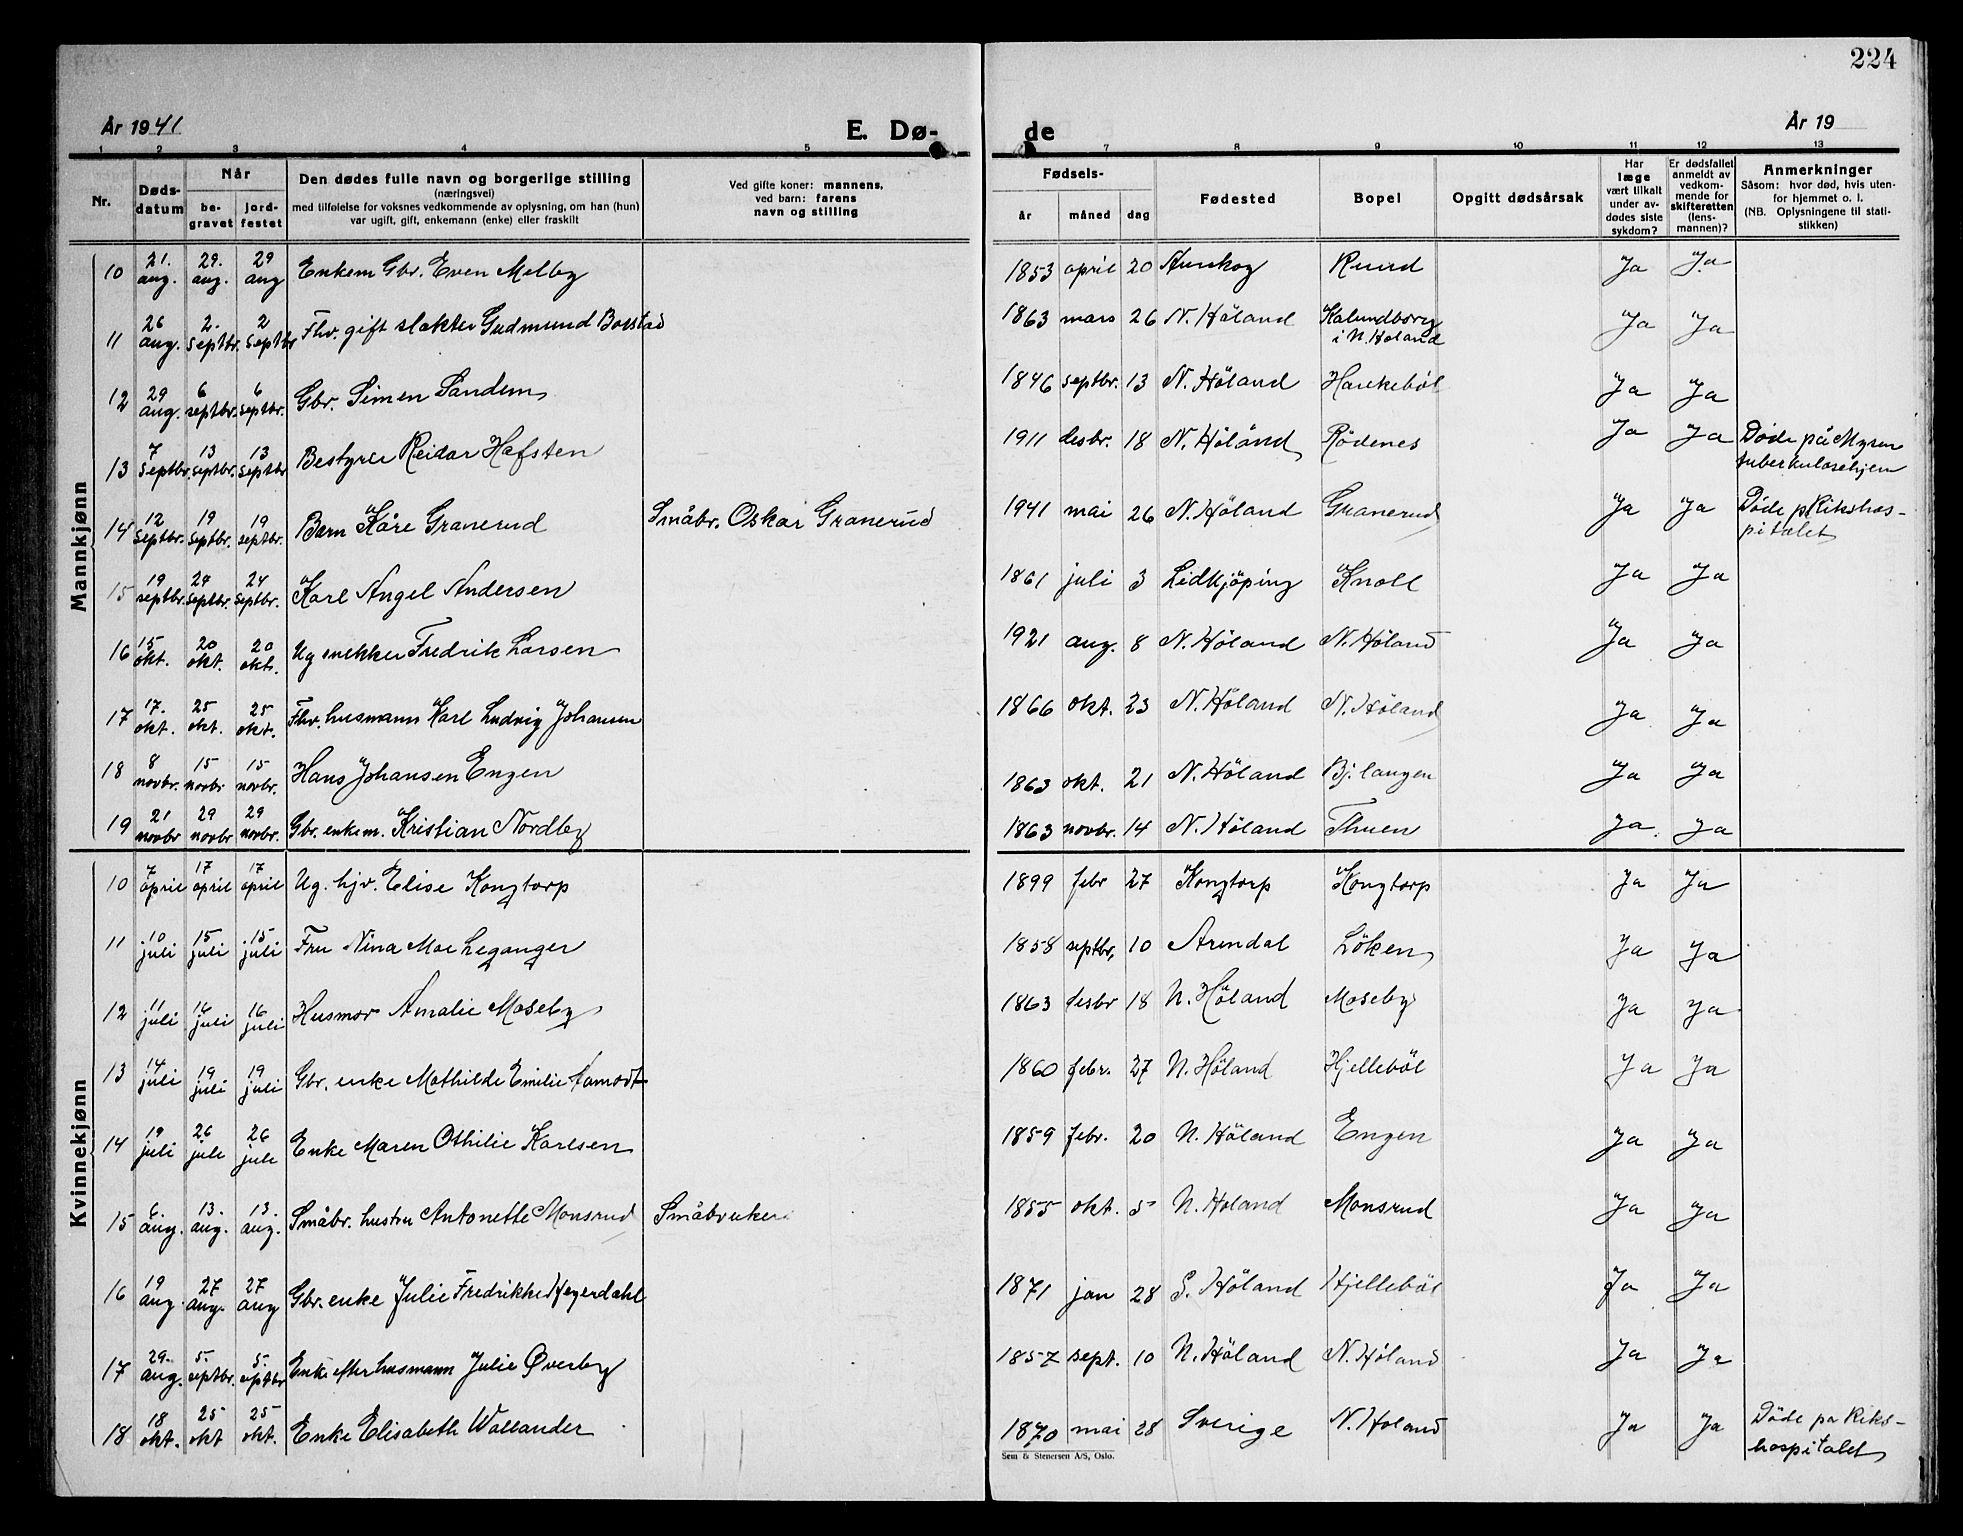 224
År 1941
E. Dø-
de
År 19
1 2 3 4 5 7 8 9 10 11 12 13
Nr.
Døds-
datum
Når
be-
gravet
jord-
festet
Den dødes fulle navn og borgerlige stilling
(næringsvei)
med tilføielse for voksnes vedkommende av oplysning, om han (hun)
var ugift, gift, enkemann (enke) eller fraskilt
Ved gifte koner: mannens,
ved barn: farens
navn og stilling
Fødsels-
år måned dag
Fødested
Bopel
Opgitt dødsårsak
Har
læge
vært tilkalt
under av-
dødes siste
sykdom?
Er dødsfallet
anmeldt av
vedkom-
mende for
skifteretten
(lens-
mannen)?
Anmerkninger
Såsom: hvor død, hvis uten-
for hjemmet o. l.
(NB. Oplysningene til stati-
stikken)
Mannkjønn
10 21. aug. 29. aug. 29 aug Enkem Gbr. Even Melby 1853 april 20 Aurskog Ruud Ja Ja
11 26 aug. 2. septbr. 2 septbr Fhv. gift slakter Gudmund Borstad 1863 mars 26 N. Höland Kalundborg
i N. Høland Ja Ja
12 29 aug. 6 septbr. 6 septbr. Gbr. Simen Sandem 1846 septbr. 13 N. Höland Harekeböl Ja Ja
13 7 septbr. 13 septbr. 13 septbr Bestyrer Reidar Hafsten 1911 desbr. 18 N. Höland Rödenes Ja Ja Döde på Myren
tuberkulosehjem
14 12 septbr. 19 septbr. 19 septbr. Barn Kåre Granerud Småbr. Oskar Granerud 1941 mai 26 N. Höland Granerud Ja Ja Döde p Rikshos-
pitalet
15 19 septbr. 24 septbr. 24 septbr. Karl Angel Andersen 1861 juli 3 Lidkjöping Knoll Ja Ja
16 15 okt. 20 okt. 20 okt. Ug snekker Fredrik Larsen 1921 aug. 8 N. Höland N. Höland Ja Ja
17 17. okt. 25 okt. 25 okt. Fhv. husmann Karl Ludvig Johansen 1866 okt. 23 N. Höland N. Höland Ja Ja
18 8 novbr. 15 novbr 15 novbr. Hans Johansen Engen 1863 okt. 21 N. Höland Bj. langen Ja Ja
19 21 novbr 29 novbr 29 novbr. Gbr. enkem. Kristian Nordby 1863 novbr. 14 N. Höland Thuen Ja. Ja
Kvinnekjønn
10 7 april 17 april 17 april Ug. hjv. Elise Kongtorp 1899 febr 27 Kongtorp Kongtorp Ja Ja
11 10 juli 15 juli 15 juli Fru Nina Moe Leganger 1858 septbr. 10 Arendal Löken Ja Ja
12 11 juli 16 juli 16 juli Husmor Amalie Moseby 1863 desbr 18 N. Höland Moseby Ja Ja
13 14 juli 19 juli 19 juli Gbr. enke Mathilde Emilie Aamodt 1860 febr. 27 N. Höland Hjelleböl Ja Ja
14 19 juli 26 jule 26 jule Enke Maren Othilie Karlsen 1859 febr. 20 N. Höland Engen Ja Ja
15 6. aug. 13. aug. 13. aug. Småbr. hustru Antonette Monsrud Småbruker 1855 okt. 5 N. Höland Monsrud Ja Ja
16 19 aug. 27 aug. 27 aug Gbr. enke Julie Fredrikke Heyerdahl 1871 jan 28 S. Höland Hjelleböl Ja Ja
17 29. aug. 5. septbr. 5. septbr Enke efter husmann Julie Øverby 1857 sept. 10 N. Höland N. Höland Ja Ja
18 18 okt. 25 okt 25 okt. Enke Elisabeth Wallander 1870 mai 28 Sverige N. Holand Ja Ja Döde pa Riks-
hospitalet
Sem & Stenersen A/S, Oslo.